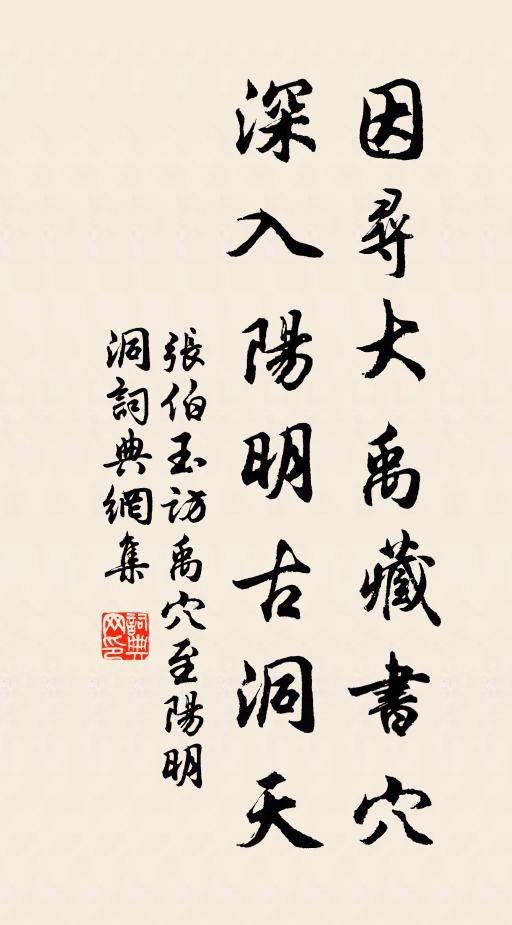 因尋大禹藏書穴
深入陽明古洞天
張伯玉訪禹穴至陽明
洞詞典網集
詞典
网印